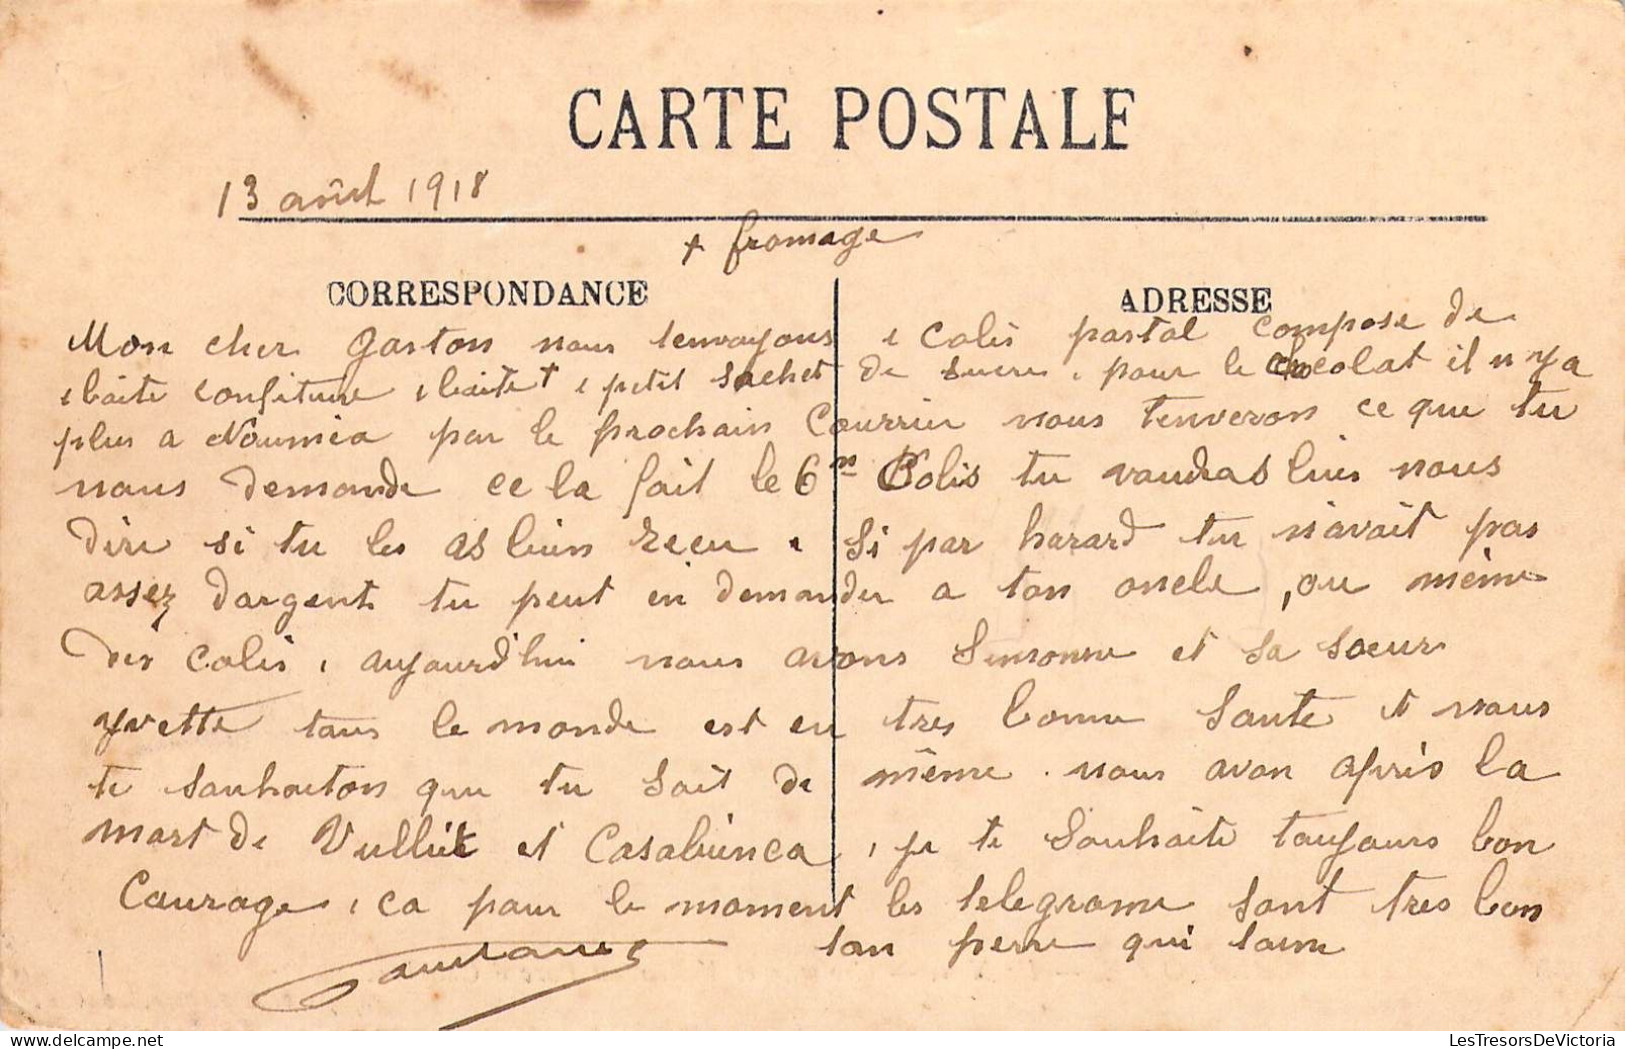 CARTE POSTALE
13 août 1918
+ fromage
CORRESPONDANCE
ADRESSE
Mon cher Gaston nous tenvoyons 1 Colis postal compose de
1 boite confiture 1 boite + 1 petit sachet de sucre, pour le chocolat il n y a
plus a Noumea par le prochain Courrier nous tenveron ce que tu
nous demande ce la fait le 6m Colis tu voudras bien nous
dire si tu les as bien recu, si par hazard tu n'avait pas
assez dargent tu peut en demander a ton oncle, ou même
des colis, aujourd'hui nous avons Simonne et sa soeur
yvette tous le monde est en tres bonne Sante et nous
te souhaiton que tu soit de même. nous avon apris la
mort de et Casabianca, je te Souhaite toujours bon
Courage, ca pour le moment les telegrame sont tres bon
ton perre qui taime
LesTresorsDeVictoria
www.delcampe.net